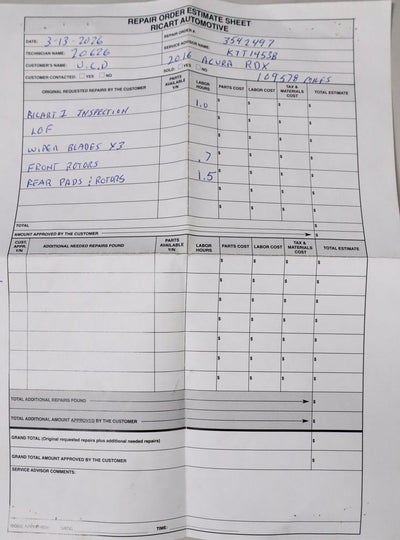 REPAIR ORDER ESTIMATE SHEET
RICART AUTOMOTIVE
DATE: 3-13-2026 REPAIR ORDER # 3542497
TECHNICIAN NAME: 70626 SERVICE ADVISOR NAME: KTT1455B
CUSTOMER'S NAME: U.C.D 2016 ACURA RDX
CUSTOMER CONTACTED: YES NO SOLD: YES NO 109578 MILES
ORIGINAL REQUESTED REPAIRS BY THE CUSTOMER PARTS AVAILABLE Y/N LABOR HOURS PARTS COST LABOR COST TAX & MATERIALS COST TOTAL ESTIMATE
RICART I INSPECTION 1.0 $ $ $ $
LOF $ $ $ $
WIPER BLADES X3 $ $ $ $
FRONT ROTORS .7 $ $ $ $
REAR PADS & ROTORS 1.5 $ $ $ $
$ $ $ $
TOTAL $
AMOUNT APPROVED BY THE CUSTOMER $
CUST. APPR. Y/N ADDITIONAL NEEDED REPAIRS FOUND PARTS AVAILABLE Y/N LABOR HOURS PARTS COST LABOR COST TAX & MATERIALS COST TOTAL ESTIMATE
$ $ $ $
$ $ $ $
$ $ $ $
$ $ $ $
$ $ $ $
$ $ $ $
$ $ $ $
TOTAL ADDITIONAL REPAIRS FOUND $
TOTAL ADDITIONAL AMOUNT APPROVED BY THE CUSTOMER $
GRAND TOTAL (Original requested repairs plus additional needed repairs) $
GRAND TOTAL AMOUNT APPROVED BY THE CUSTOMER $
SERVICE ADVISOR COMMENTS:
TIME: